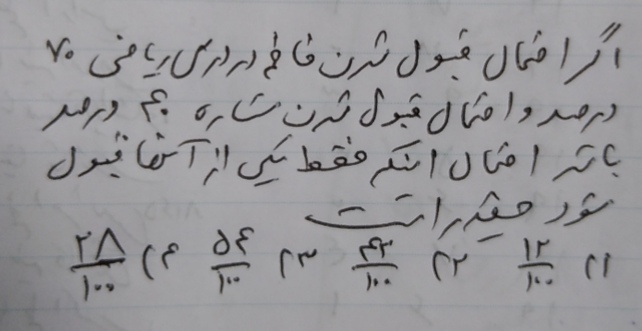 اگر احتمال قبول شدن فاطمه در درس ریاضی ۷۰
درصد و احتمال قبول شدن ستاره ۶۰ درصد
باشد احتمال اینکه فقط یکی از آنها قبول
شود چقدر است
۱) ۱۲/۱۰۰ ۲) ۴۲/۱۰۰ ۳) ۵۴/۱۰۰ ۴) ۲۸/۱۰۰